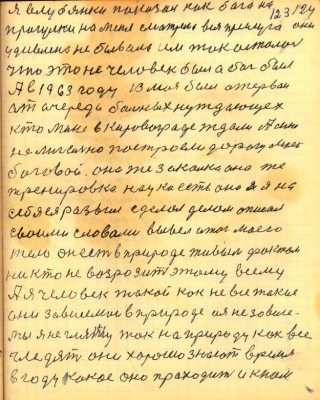 123 124
Я в лубянки показан как бога на
прогулки на меня смотрела вся премуга они
удивлено не бывало им так
что это не человек был а бог был
А в 1963 году 13 мая был оторван
от очереди больных нуждающех
кто меня в Кировограде ждали А
лично построил дорогу
боговой. она же закалка она же
тренировка наука есть она я я на
себя развил сделал делом описал
своими словами вывел итог моего
тело он есть в природе живым фактом
никто не возрозит этому всему
А я человек такой как не все такие
они зависемои в природе а я не зовисе-
мы я не глятю так на природу как все
глядят они хорошо знают время
в году какое оно праходит и к ном